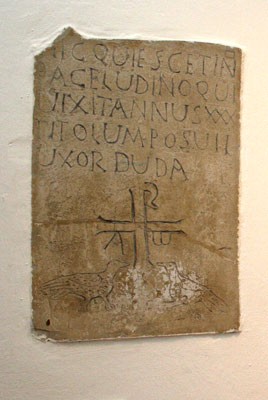 HIC QUIESCET IN
PACE LUDINO QUI
VIXIT ANNUS XXX
TITOLUM POSUIT
UXOR DUDA
A ω